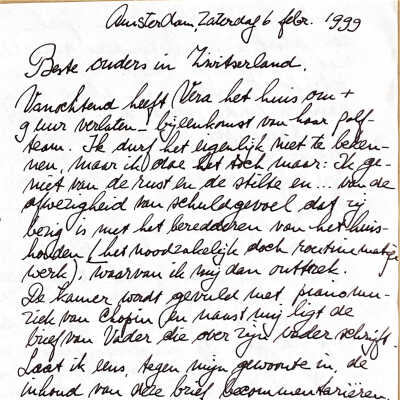 Amsterdam, Zaterdag 6 febr. 1999
Beste ouders in Zwitserland,
Vanochtend heeft Vera het huis om +
9 uur verlaten – bijeenkomst van haar golf-
team. Ik durf het eigenlijk niet te beken-
nen, maar ik doe het toch maar: ik ge-
niet van de rust en de stilte en ... van de
afwezigheid van schuldgevoel dat zij
bezig is met het beredderen van het huis-
houden (het noodzakelijk doch routinematige
werk), waarvan ik mij dan onttrek.
De kamer wordt gevuld met pianomu-
ziek van Chopin en naast mij ligt de
brief van Vader die over zijn vader schrijft.
Laat ik eens, tegen mijn gewoonte in, de
inhoud van deze brief becommentariëren.